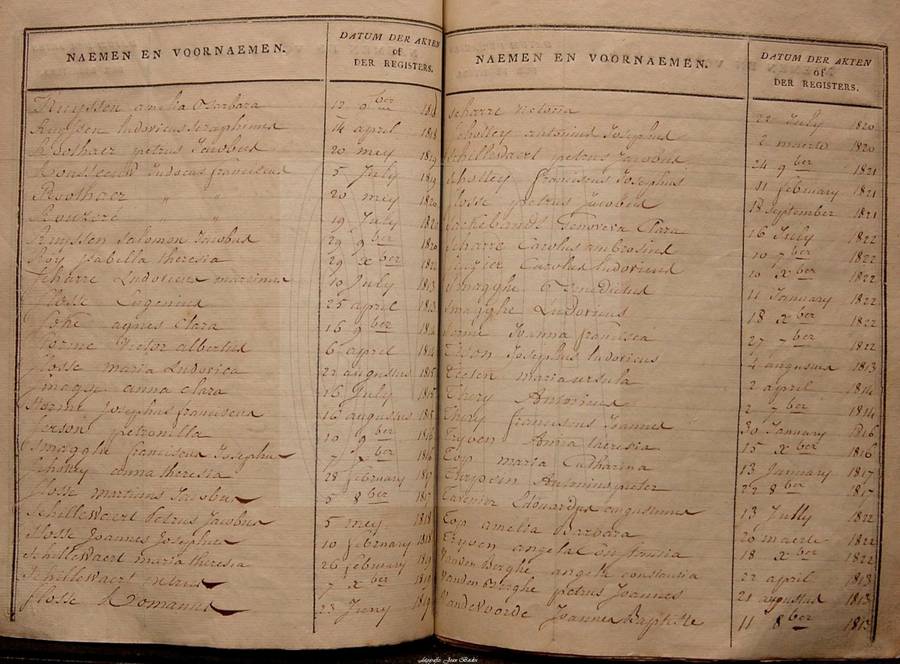 NAEMEN EN VOORNAEMEN.
DATUM DER AKTEN
of
DER REGISTERS.
Ruyssen amelia Barbara 12 9ber 1818
Ruyssen ludovicus seraphinus 14 april 1818
Roothaer petrus Jacobus 20 mey 1819
ludovicus franciscus 5 July 1819
Roothaer " " 20 mey 1820
" 19 July 1820
Ruyssen Salomon Jacobus 29 9ber 1820
Roy ysabella theresia 29 xber
Scharre Ludovicus 10 July 1813
Slosse Eugenius 25 april 1813
agnes Clara 16 9ber 1814
Storme Victor albertus 6 april 1814
Slosse maria Ludovica 22 augustus 1815
anna Clara 16 July 1815
Storme Josephus franciscus 16 augustus 1815
petronilla 10 9ber 1816
Smagghe franciscus Josephus 7 xber 1816
anna theresia 28 february 1817
Slosse martinus Jacobus 5 8ber 1817
Schillewaert Petrus Jacobus 5 mey 1818
Slosse Joannes Josephus 10 february 1818
Schillewaert maria theresia 26 february 1819
Schillewaert petrus 7 xber 1819
Slosse Romanus 23 Juny 1819
NAEMEN EN VOORNAEMEN.
DATUM DER AKTEN
of
DER REGISTERS.
Scharre Victoria 22 July 1820
Scholley antonius Josephus 2 maerte 1820
Schillewaert petrus Jacobus 24 9ber 1821
Scholley franciscus Josephus 11 february 1821
Slosse petrus Jacobus 18 September 1821
Genovera Clara 16 July 1822
Scharre Carolus ambrosius 10 7ber 1822
Carolus ludovicus 10 xber 1822
Smagghe Benedictus 11 January 1822
Smagghe Ludovicus 18 xber 1822
Joanna francisca 27 7ber 1822
Josephus ludovicus 4 augustus 1813
maria ursula 2 april 1814
Thery Antonius 2 7ber 1814
Thery franciscus Joannes 30 January 1816
Tryoen Anna theresia 15 xber 1816
Top maria Catharina 13 January 1817
Antonius pieter 22 8ber 1817
Edouardus augustinus 13 July 1822
Top amelia Barbara 20 maerte 1822
Tryoen 18 xber 1822
Vanden Berghe angela constantia 22 april 1813
Vanden Berghe petrus Joannes 21 augustus 1813
Vandevoorde Joannes Baptiste 11 8ber 1813